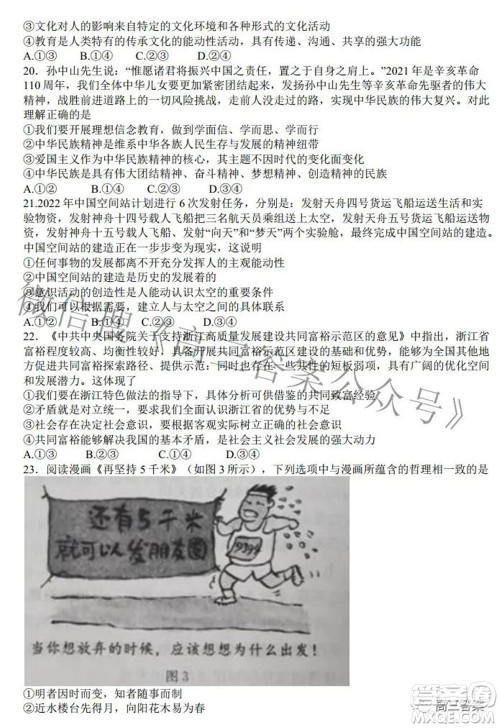 ③文化对人的影响来自特定的文化环境和各种形式的文化活动
④教育是人类特有的传承文化的能动性活动，具有传递、沟通、共享的强大功能
A.①③ B.①④ C.②③ D.②④
20．孙中山先生说：“惟愿诸君将振兴中国之责任，置之于自身之肩上。”2021 年是辛亥革命
110 周年，我们全体中华儿女要更加紧密团结起来，发扬孙中山先生等辛亥革命先驱者的伟大
精神，战胜前进道路上的一切风险挑战，向前奋进，实现中华民族的伟大复兴。对此
理解正确的是
①我们要开展理想信念教育，做到学而信、学而思、学而行
②中华民族精神是维系中华各族人民生存与发展的精神纽带
③爱国主义作为中华民族精神的核心，其内涵因时代的变化而变化
④中华民族具有伟大团结精神、奋斗精神、梦想精神、创造精神
A.①② B.①③ C.②④ D.③④
21.2022 年中国空间站计划进行 6 次发射任务，分别是：发射天舟四号货运飞船运送生活和实
验物资，发射神舟十四号载人飞船把三名航天员乘组送入太空，发射天舟五号货运飞船运送
物资，发射神舟十五号载人飞船，发射“问天”和“梦天”两个实验舱，最终完成中国空间站的建造。
中国空间站的建造说明
①任何事物的发展都离不开充分发挥人的主观能动性
②中国空间站的建造是历史的发展着的
③意识活动的创造性是人能动认识太空的重要条件
④我们可以根据需要，建立人与太空之间的具体联系
A.①② B.①④ C.②③ D.③④
22．《中共中央国务院关于支持浙江高质量发展建设共同富裕示范区的意见》中指出，浙江省
富裕程度较高、均衡性较好，具备开展共同富裕示范区建设的基础和优势，能够为全国其他地
方促进共同富裕探索路径。同时，也存在一些共性的短板弱项，具有广阔的优化空间
和发展潜力。这体现了
①我们要在浙江特色做法的指导下，具体分析可供借鉴的共同致富经验
②矛盾就是对立统一，我们要全面认识浙江省的优势与不足
③社会存在决定社会意识，要根据客观实际树立正确社会意识
④共同富裕能够解决我国的基本矛盾，是社会主义社会发展的强大动力
A.①② B.①④ C.②③ D.③④
23．阅读漫画《再坚持 5 千米》（如图 3 所示），下列选项中与漫画所蕴含的哲理相一致的是
还有5千米
就可以发朋友圈
当你想放弃的时候，应该想想为什么出发！
图 3
①明者因时而变，知者随事而制
②近水楼台先得月，向阳花木易为春
微信搜《高三答案公众号》
高三答案